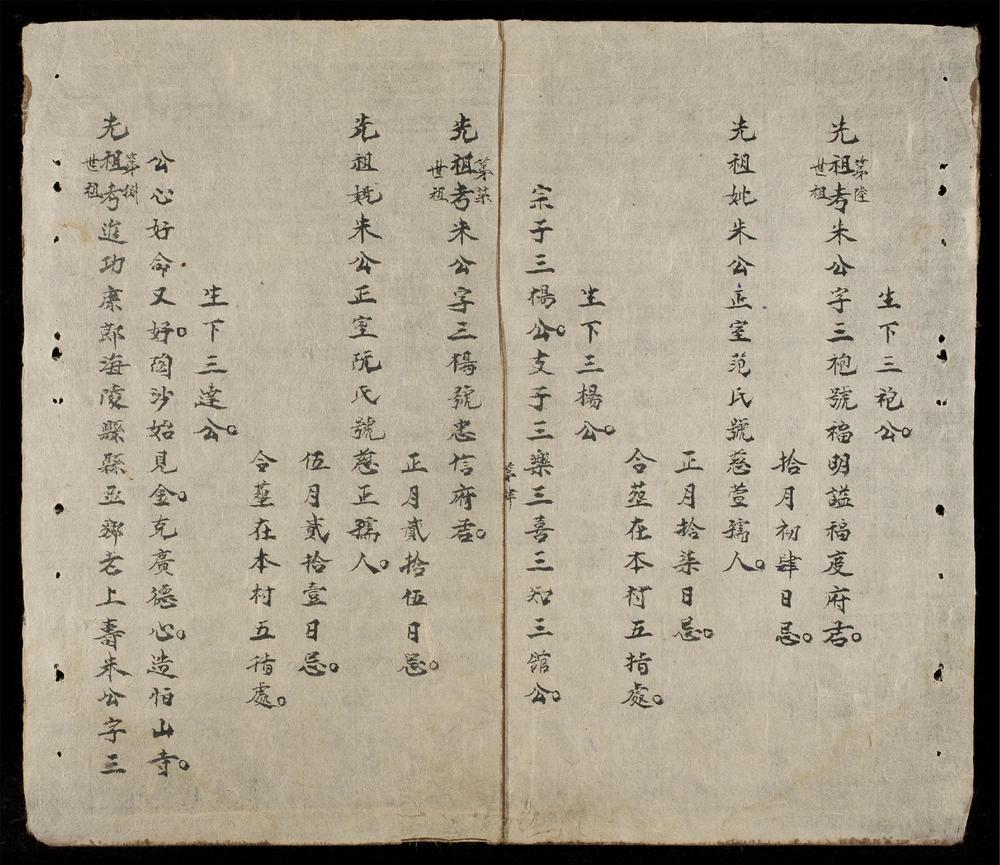 生下三袍公
先祖考朱公字三袍號福明謚福度府君
第陸
世祖
拾月初肆日忌
先祖妣朱公正室范氏號慈萱孺人
正月拾柒日忌
合塟在本村五揹處
生下三楊公
宗子三楊公支子三樂三喜三知三館公
第肆
先祖考朱公字三楊號忠信府君
第柒
世祖
正月貳拾伍日忌
先祖妣朱公正室阮氏號慈正孺人
伍月貳拾壹日忌
合塟在本村五揹處
生下三達公
公心好命又好陶沙始見金克廣德心造怕山寺
先祖考進功庶郎海陵縣縣丞鄉老上壽朱公字三
第捌
世祖